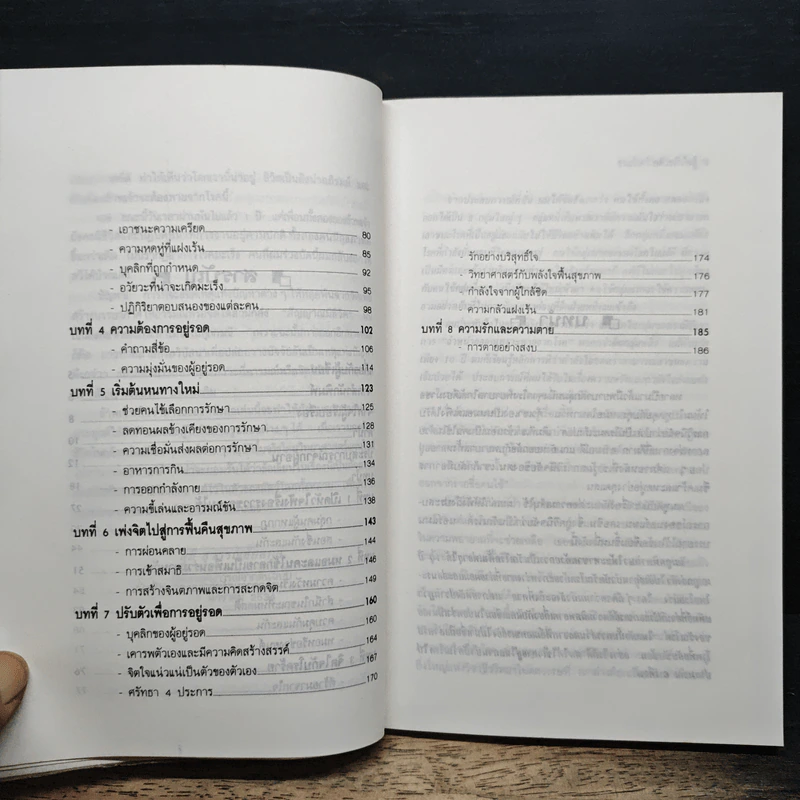 - เอาชนะความเครียด 80
- ความหดหู่ที่แฝงเร้น 85
- บุคลิกที่ถูกกำหนด 92
- อวัยวะที่น่าจะเกิดมะเร็ง 95
- ปฏิกิริยาตอบสนองของแต่ละคน 98
บทที่ 4 ความต้องการอยู่รอด 102
- คำถามสี่ข้อ 106
- ความมุ่งมั่นของผู้อยู่รอด 114
บทที่ 5 เริ่มต้นหนทางใหม่ 123
- ช่วยคนไข้เลือกการรักษา 125
- ลดทอนผลข้างเคียงของการรักษา 128
- ความเชื่อมั่นส่งผลต่อการรักษา 131
- อาหารการกิน 134
- การออกกำลังกาย 136
- ความขี้เล่นและอารมณ์ขัน 138
บทที่ 6 เพ่งจิตไปสู่การฟื้นคืนสุขภาพ 143
- การผ่อนคลาย 144
- การเข้าสมาธิ 146
- การสร้างจินตภาพและการสะกดจิต 149
บทที่ 7 ปรับตัวเพื่อการอยู่รอด 160
- บุคลิกของผู้อยู่รอด 160
- เคารพตัวเองและมีความคิดสร้างสรรค์ 164
- จิตใจแน่วแน่เป็นตัวของตัวเอง 167
- ศรัทธา 4 ประการ 170
- รักอย่างบริสุทธิ์ใจ 174
- วิทยาศาสตร์กับพลังใจฟื้นสุขภาพ 176
- กำลังใจจากผู้ใกล้ชิด 177
- ความกลัวแฝงเร้น 181
บทที่ 8 ความรักและความตาย 185
- การตายอย่างสงบ 186